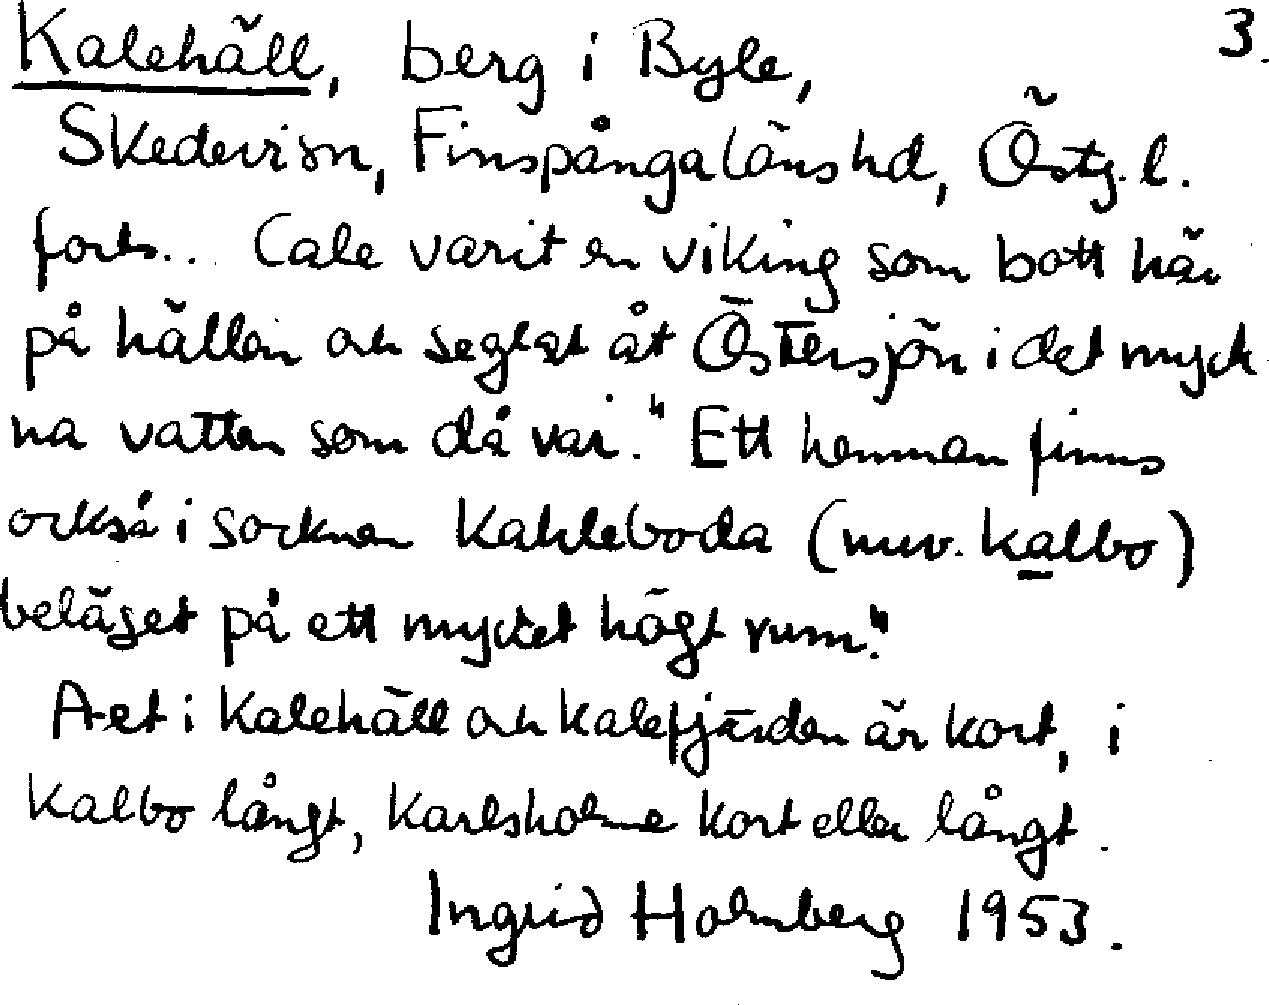 Kalehäll, berg i Byle, 3.
Skedevi sn, Finspånga läns hd, Östg. l.
forts... Cale varit en viking som bott här
på hällen och seglat åt Östersjön i det myck
na vatten som då var." Ett hemman finns
också i socknen Kahleboda (nuv. Kalbo)
beläget på ett mycket högt rum."
A-et i Kalehäll och Kalefjärden är kort, i
Kalbo långt, Karlsholme kort eller långt.
Ingrid Holmberg 1953.